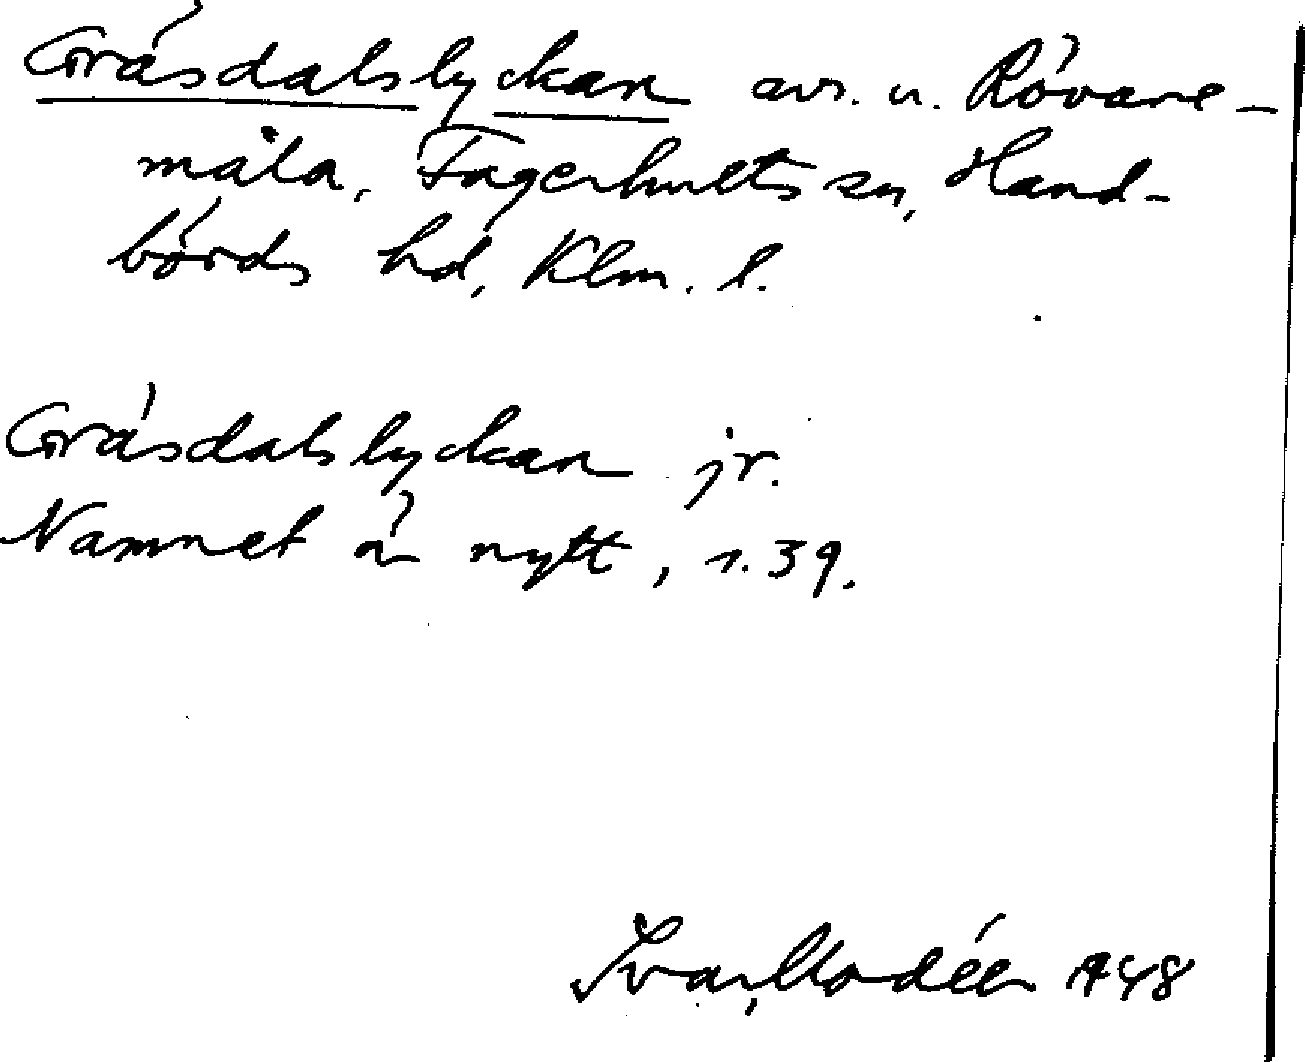 Gräsdalslyckan avs. u. Rövare-
måla, Fagerhults sn, Hand-
börds hd, Klm. l.
Gräsdalslyckan jr.
Namnet är nytt, s. 39.
Ivar Modéer 1948